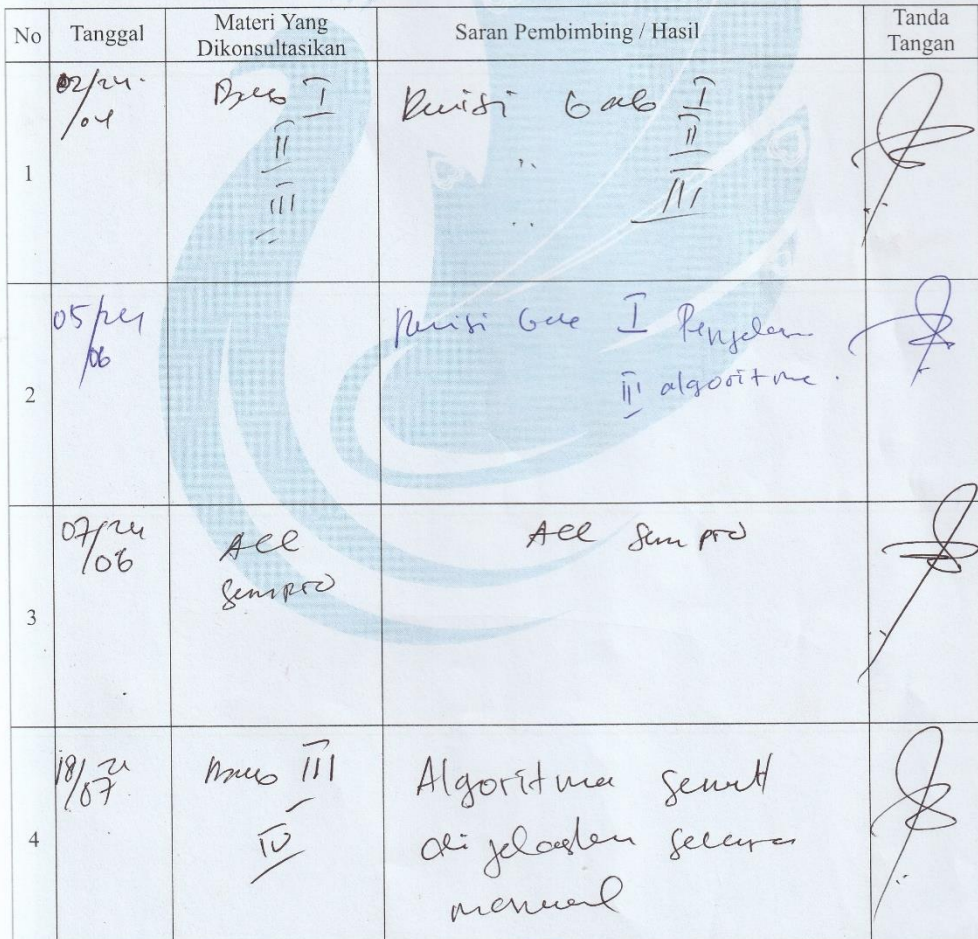 No Tanggal Materi Yang Dikonsultasikan Saran Pembimbing / Hasil Tanda Tangan
1 02/24 /04 Bab I Revisi Bab I
II " II
III " III
2 05/24 /06 Revisi Bab I
III algoritma.
3 07/24 /06 Acc Sempro Acc Sempro
4 18/24 /07 Bab III Algoritma
IV di jelaskan secara
manual